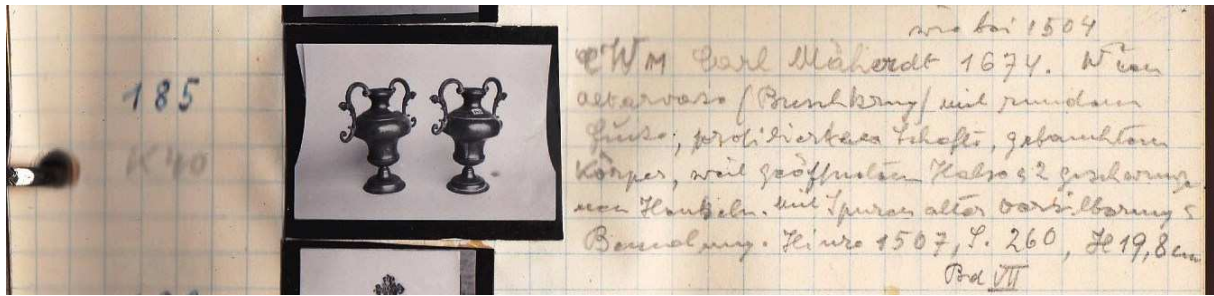 185
K40
wie bei 1504
CWM Carl Mäherdt 1674. Wien
Altarvase (Buschkrug) mit rundem
Fuße, profiliertem Schaft, gebauchtem
Körper, weit geöffnetem Halse & 2 geschwunge-
nen Henkeln. mit Spuren alter Versilberung &
Bemalung. Hinze 1507, S. 260, H 19,8 cm
Bd VII